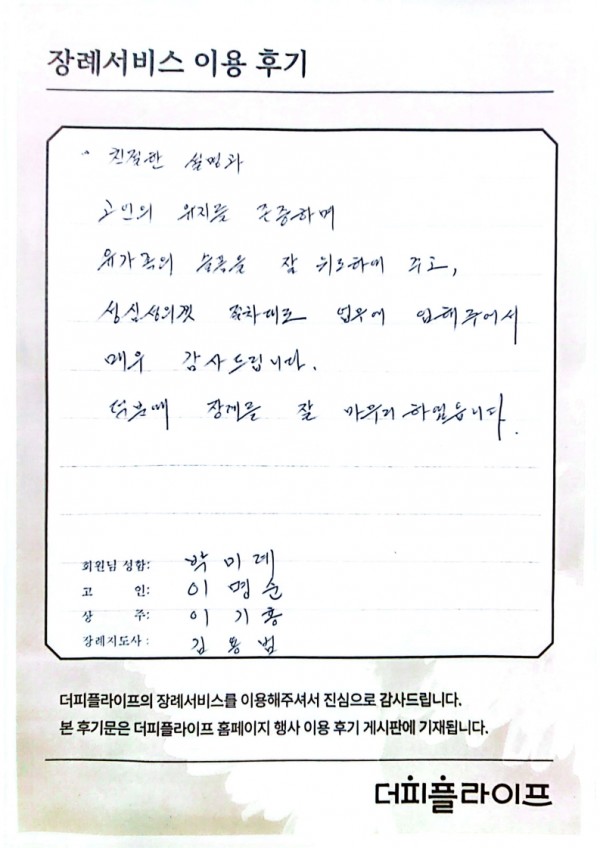 장례서비스 이용 후기
친절한 설명과
고인의 위지를 존중하며
유가족의 슬픔을 잘 위로하여 주고,
성심성의껏 절차대로 업무에 임해주어서
매우 감사드립니다.
덕분에 장례를 잘 마무리 하였습니다.
회원님 성함: 박미례
고 인: 이명순
상 주: 이기홍
장례지도사: 김용범
더피플라이프의 장례서비스를 이용해주셔서 진심으로 감사드립니다.
본 후기문은 더피플라이프 홈페이지 행사 이용 후기 게시판에 기재됩니다.
더피플라이프